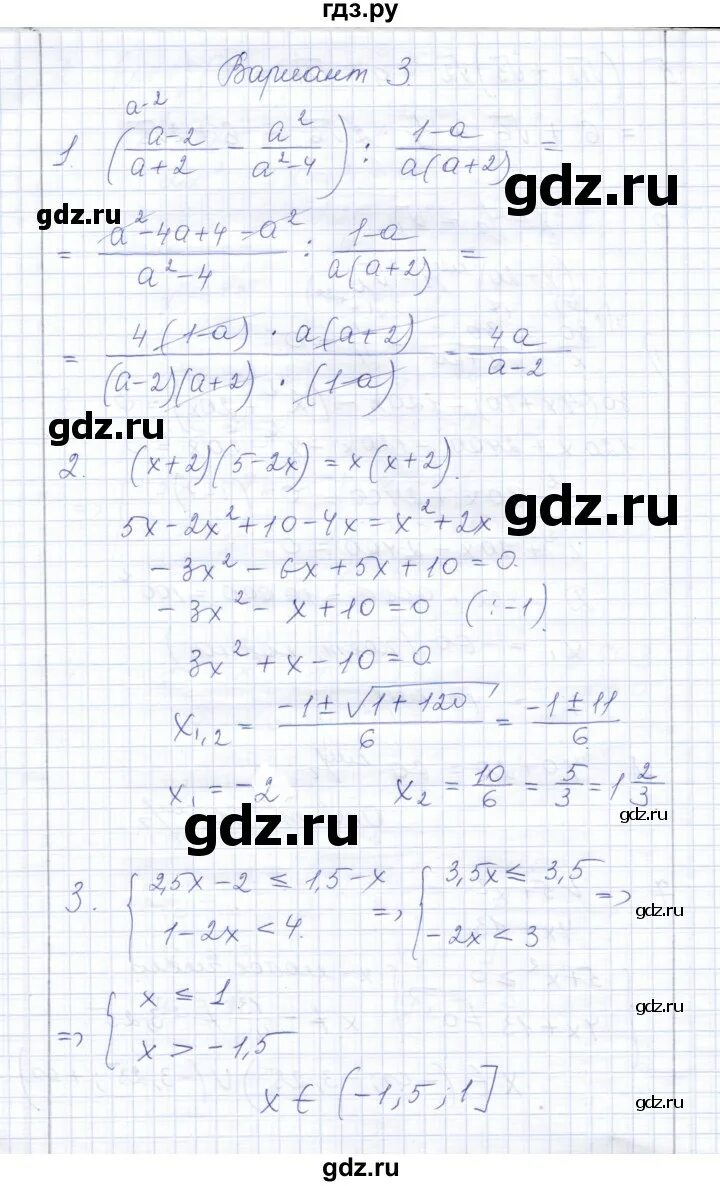 гдз.ру
Вариант 3
a-2
1. ( (a-2)/(a+2) - a²/(a²-4) ) : (1-a)/(a(a+2)) =
gdz.ru
gdz.ru
= (a²-4a+4-a²)/(a²-4) : (1-a)/(a(a+2)) =
= (4(1-a) · a(a+2))/((a-2)(a+2) · (1-a)) = 4a/(a-2)
gdz.ru
2. (x+2)(5-2x) = x(x+2).
gdz.ru
5x-2x²+10-4x = x²+2x
-3x² - 6x+5x+10=0.
-3x² - x+10=0 (:-1).
3x²+x-10=0.
x₁,₂ = (-1±√(1+120))/6 = (-1±11)/6.
x₁ = -2 x₂ = 10/6 = 5/3 = 1 2/3
gdz.ru
gdz.ru
3. { 2,5x-2 ≤ 1,5-x => { 3,5x ≤ 3,5 =>
gdz.ru
1-2x < 4. -2x < 3
gdz.ru
=> { x ≤ 1.
x > -1,5
x ∈ (-1,5; 1]
gdz.ru
gdz.ru